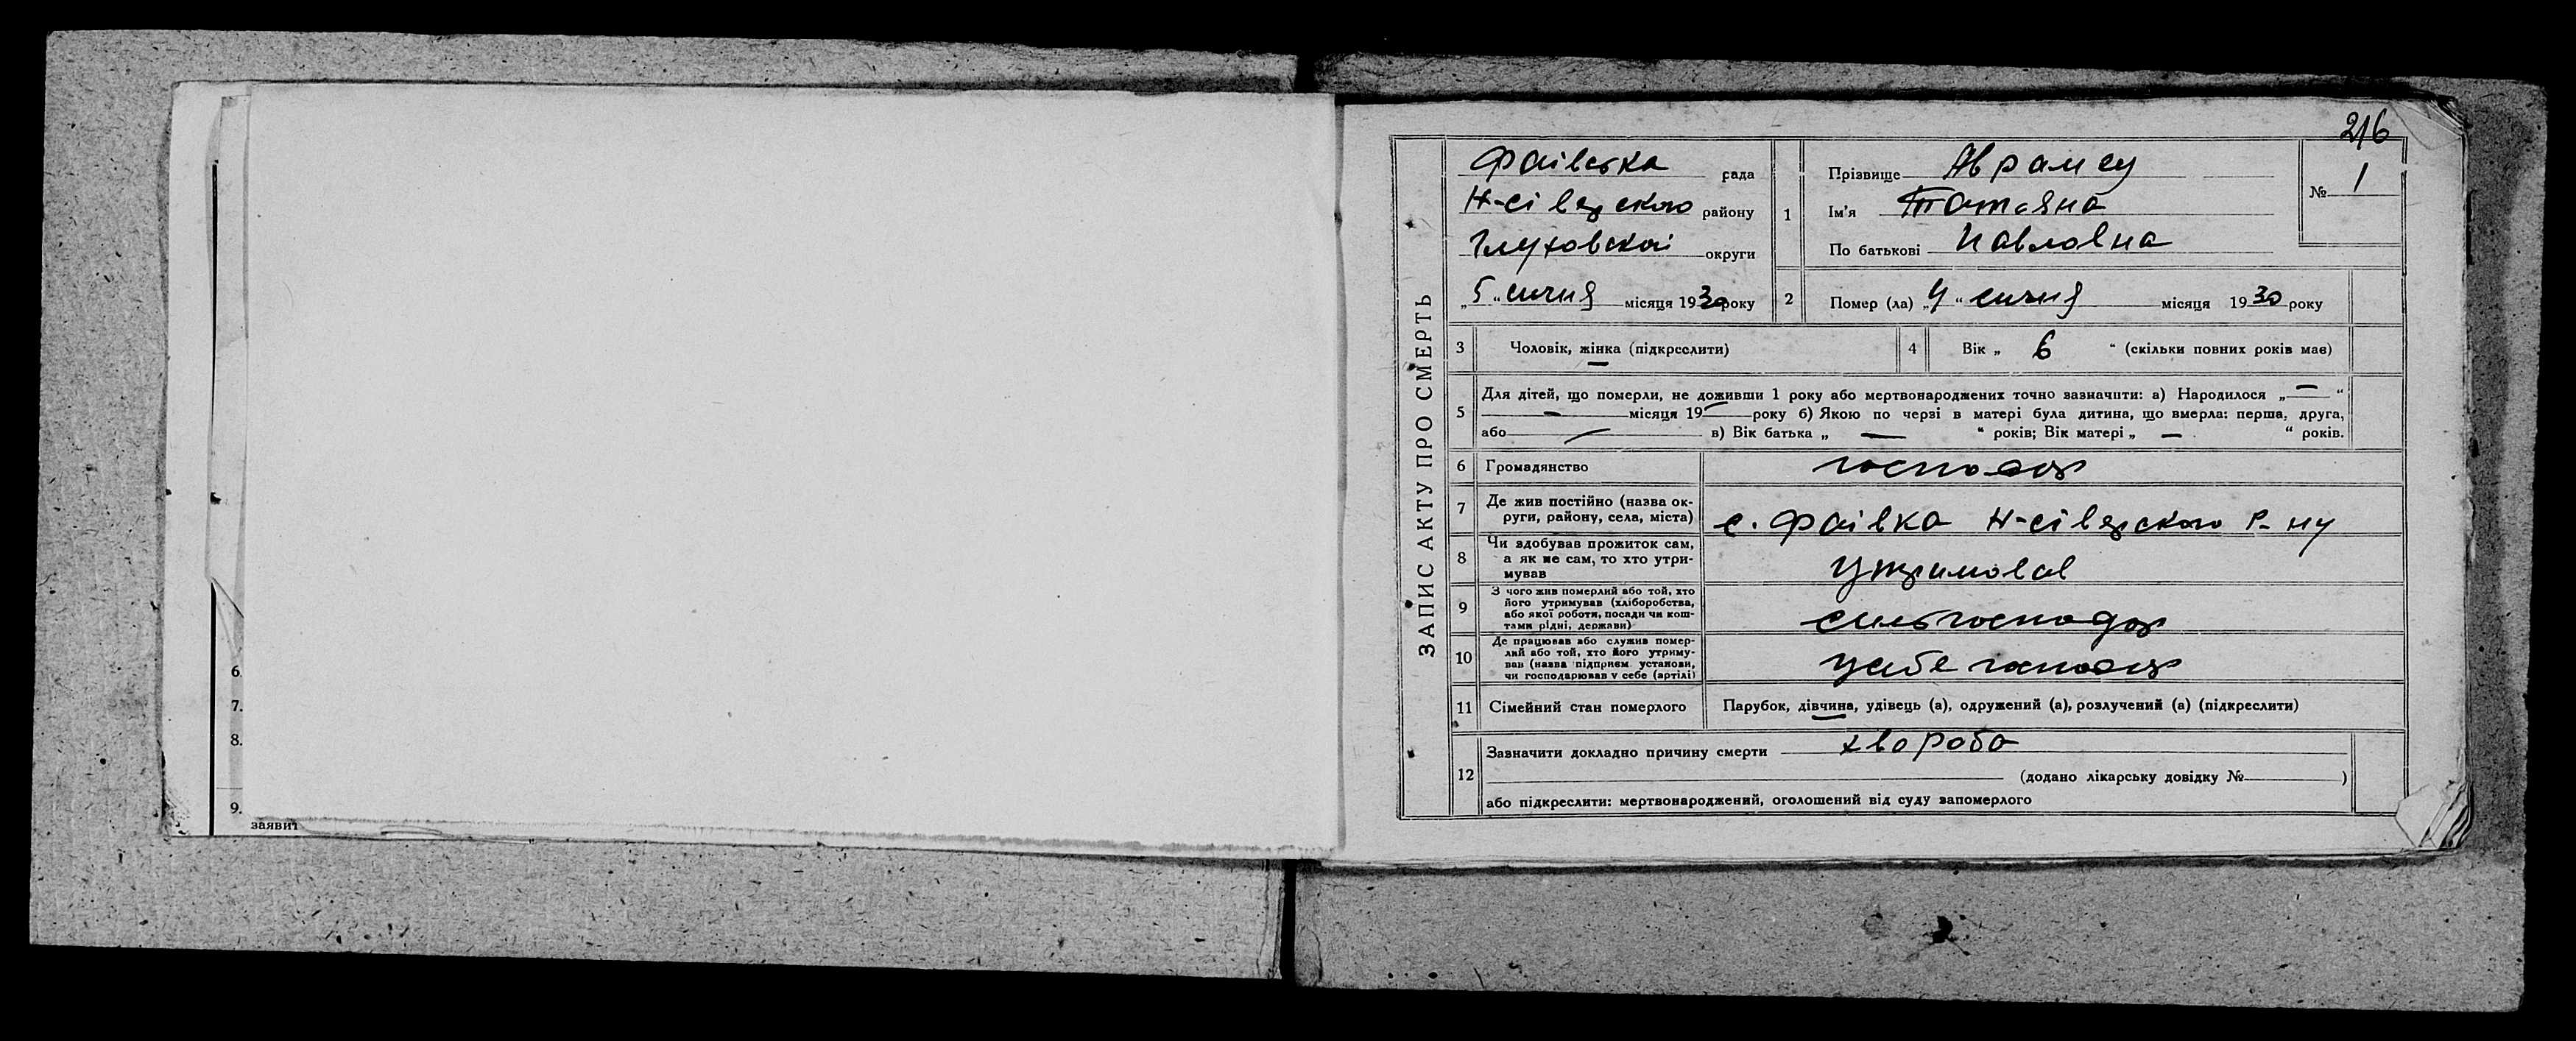 6.
7.
8.
9.
заявит
216
ЗАПИС АКТУ ПРО СМЕРТЬ
Фаівська рада
Н-сіверского району
Глуховскоі округи
„5“ сичня місяця 1930 року
1 Прізвище Аврамец
Ім'я Татьяна
По батькові Павловна
№ 1
2 Помер (ла) „4“ сичня місяця 1930 року
3 Чоловік, жінка (підкреслити)
4 Вік „ 6 “ (скільки повних років має)
5 Для дітей, що померли, не доживши 1 року або мертвонароджених точно зазначити: а) Народилося „—“
— місяця 19— року б) Якою по черзі в матері була дитина, що вмерла: перша, друга,
або — в) Вік батька „ — “ років; Вік матері „ — “ років.
6 Громадянство господар
7 Де жив постійно (назва ок-
руги, району, села, міста) с. Фаівка Н-сіверского р-ну
8 Чи здобував прожиток сам,
а як не сам, то хто утри-
мував утримовав
9 З чого жив померлий або той, хто
його утримував (хліборобства,
або якої роботи, посади чи кош-
тами рідні, держави) сильгосподар
10 Де працював або служив помер-
лий або той, хто його утриму-
вав (назва підприєм. установи,
чи господарював у себе (артілі) усебе господар
11 Сімейний стан померлого Парубок, дівчина, удівець (а), одружений (а), розлучений (а) (підкреслити)
12 Зазначити докладно причину смерти хвороба
(додано лікарську довідку № )
або підкреслити: мертвонароджений, оголошений від суду запомерлого